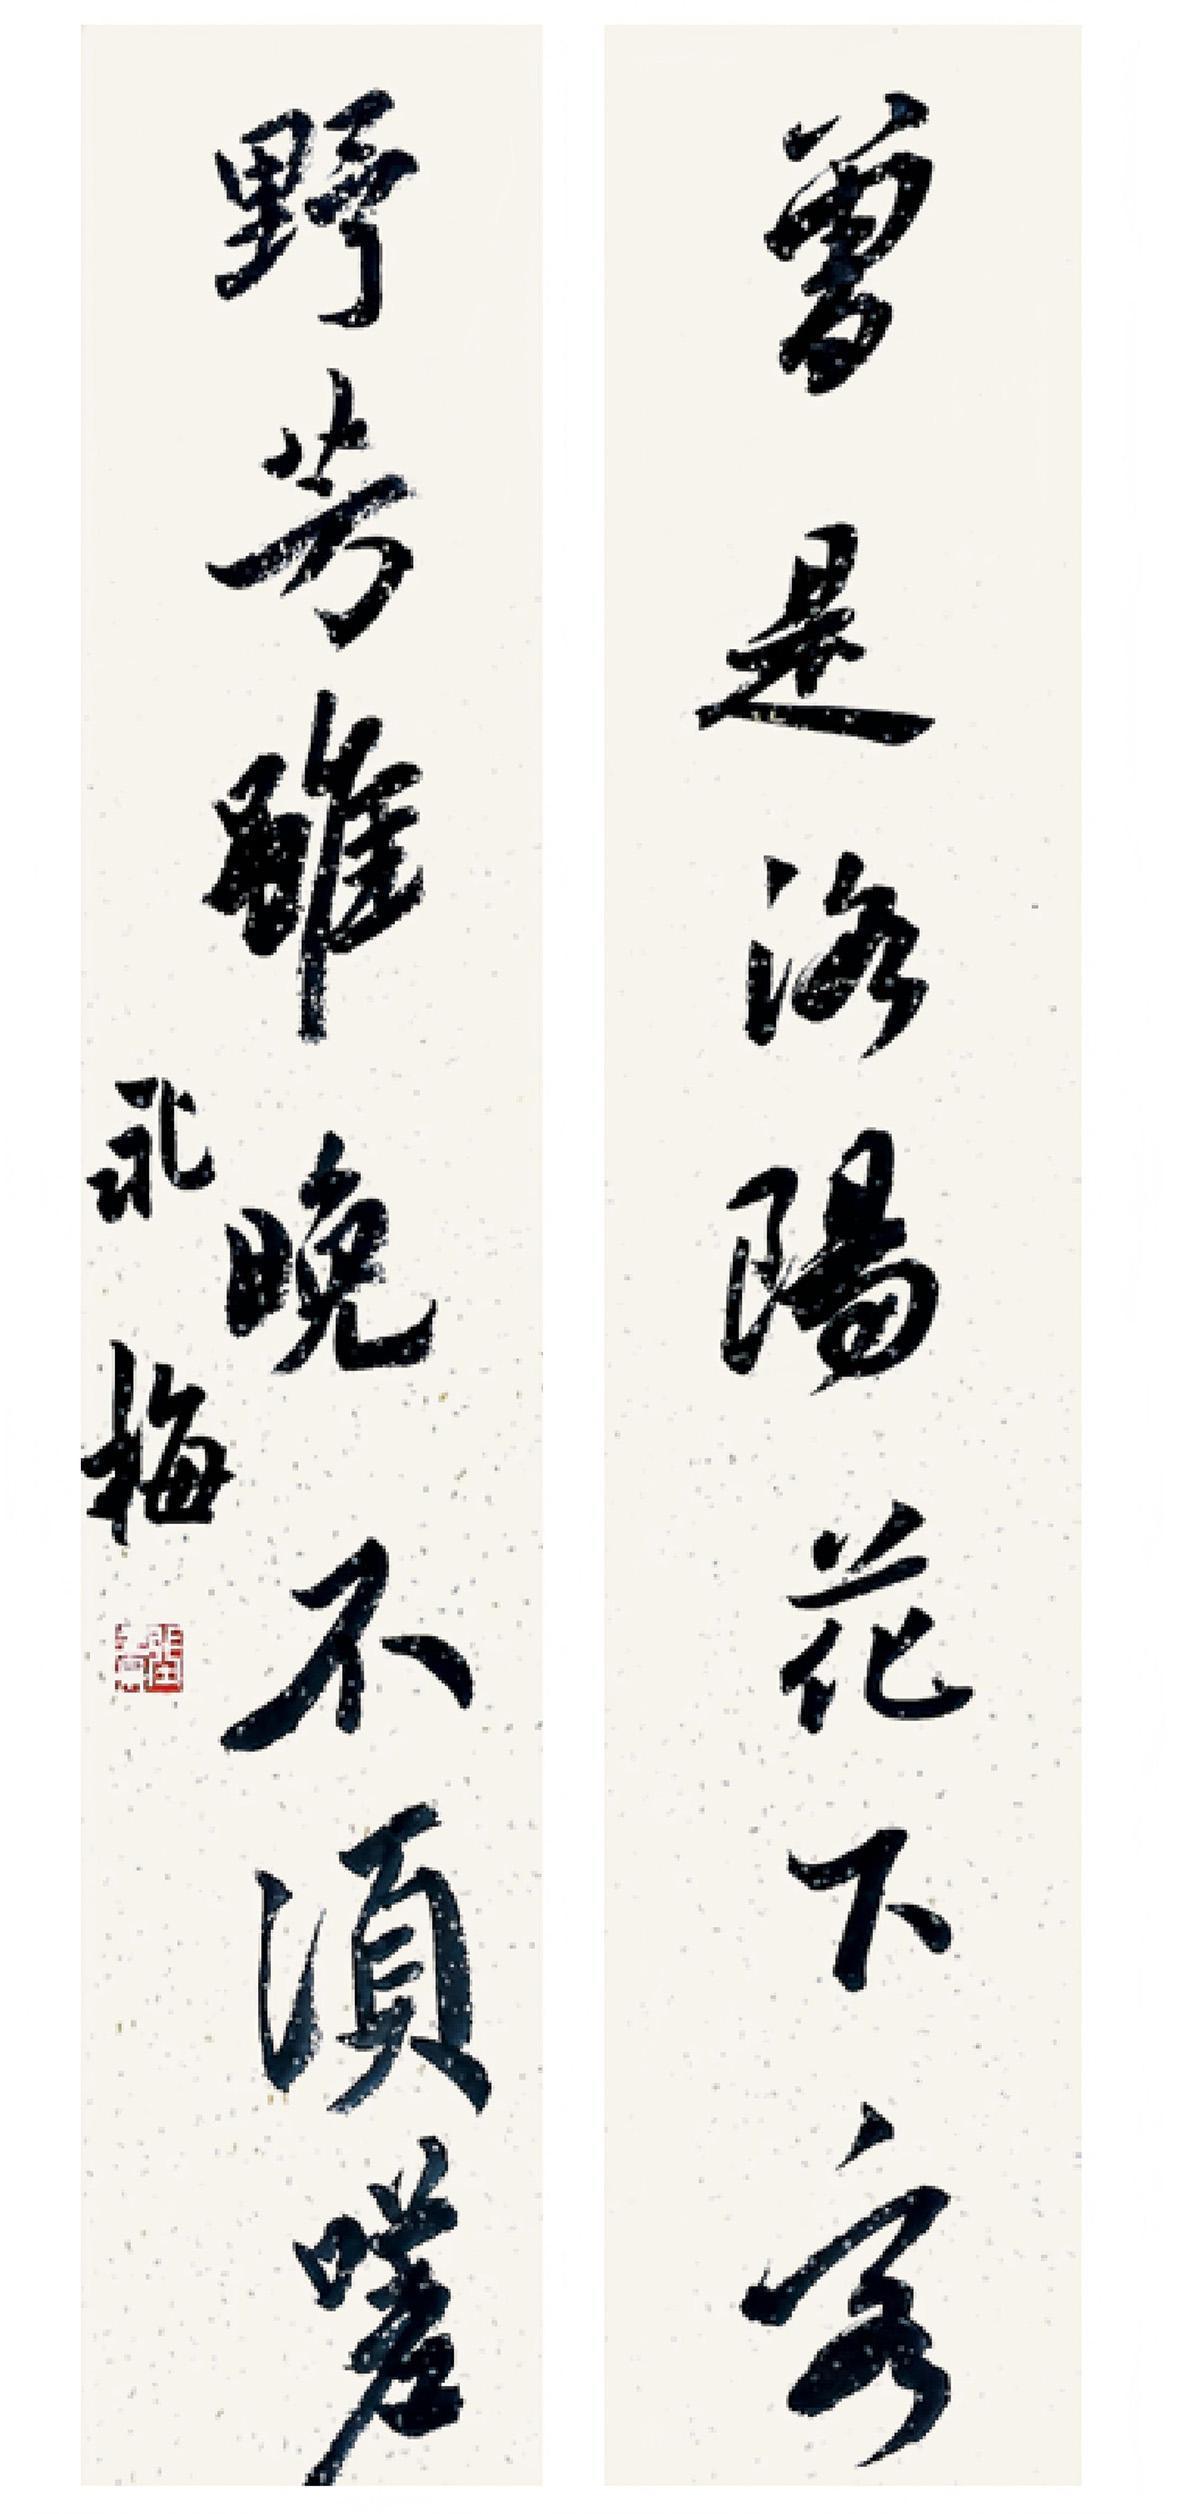 曾是洛陽花下客
野芳雖晚不須嗟
梅